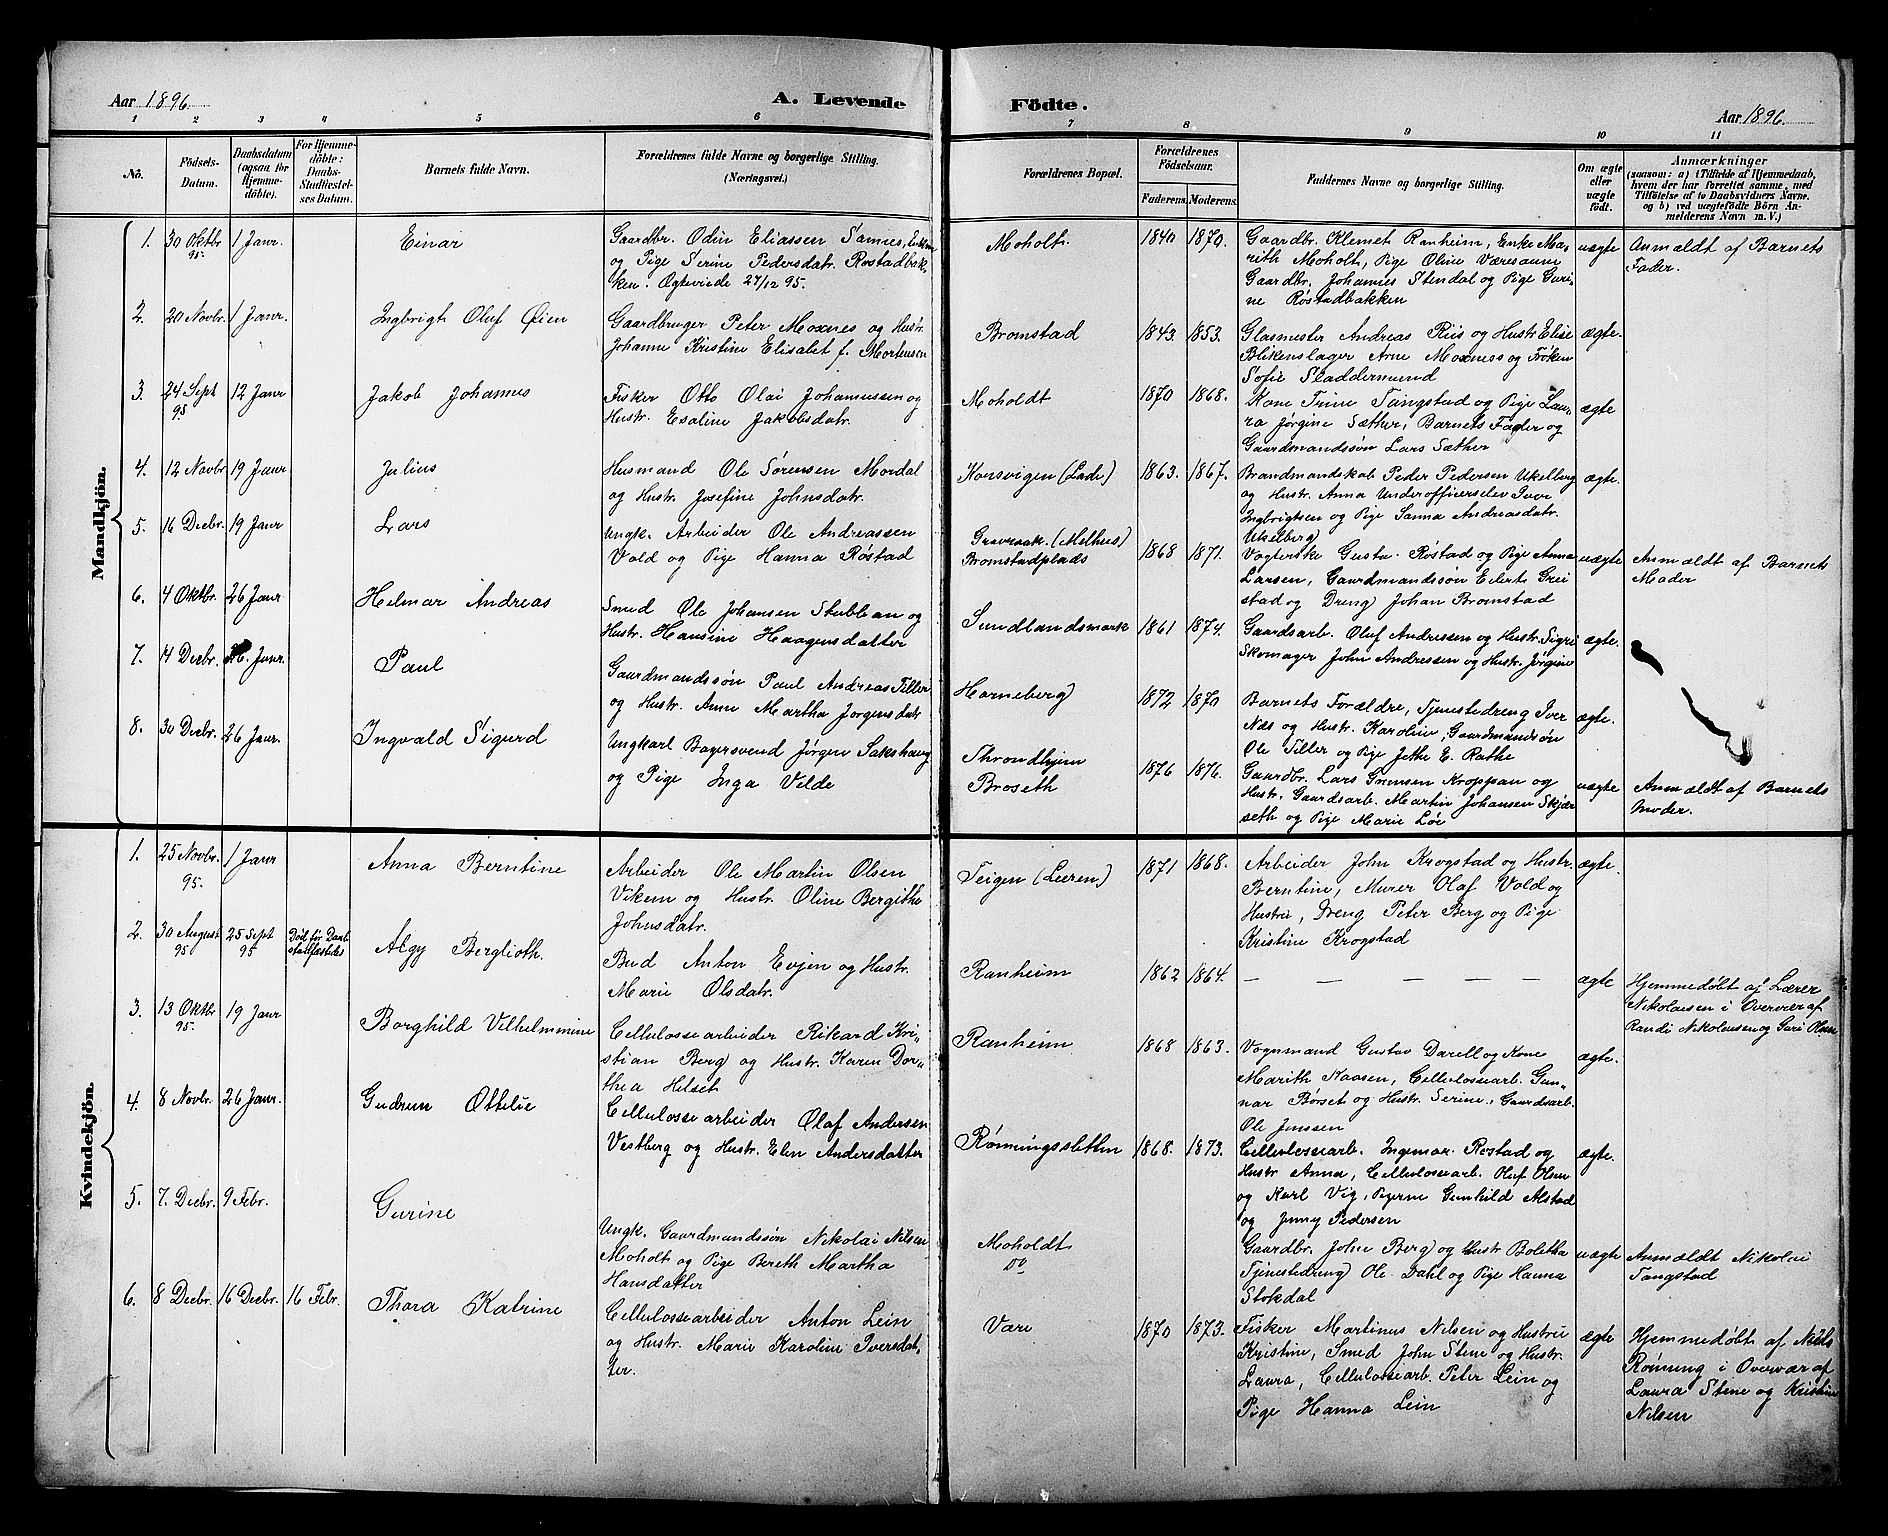 Aar 1896.
A. Levende
Födte.
Aar 1896.
1 2 3 4 5 6 7 8 9 10 11
No.
Födsels-
Datum.
Daabsdatum
(ogsaa for
Hjemme-
döbte).
For Hjemme-
döbte:
Daabs-
Stadfæstel-
ses Datum.
Barnets fulde Navn.
Forældrenes fulde Navne og borgerlige Stilling.
(Næringsvei.)
Forældrenes Bopæl.
Forældrenes
Födselsaar.
Faderens. Moderens.
Faddernes Navne og borgerlige Stilling.
Om ægte
eller
uægte
födt.
Anmærkninger
(saasom: a) i Tilfælde af Hjemmedaab,
hvem der har forrettet samme, med
Tilföielse af to Daabsvidners Navne.
og b) ved uægtefödte Börn An-
melderens Navn m. V.)
Mandkjön.
1. 30 Oktbr 95. 1 Janr. Einar
Gaardbr. Odin Eliassen Samnes,
og Pige Serine Pedersdatr. Rostadbak-
ken. Ogteviede 27/12 95.
Moholt. 1840 1870.
Gaardbr. Klemet Ranheim, Enke Ma-
rith Moholt, Pige Oline Væresaunn
Gaardbr. Johannes Stendal og Pige Guri-
ne Røstadbakken
uægte
Anmældt af Barnets
Fader.
2. 20 Novbr. 1 Janr. Ingbrigt Oluf Øien
Gaardbruger Peter Moxnes og Hustr.
Johanne Kristine Elisabet f. Mortensen
Bromstad 1843. 1853.
Glasmester Andreas Riis og Hustr Elise
Blikenslager Arne Moxness og Frøken
Sofie Sladdermund
ægte.
3. 24 Sept 95 12 Janr Jakob Johannes
Fisker Otto Olai Johannessen og
Hustr. Esaline Jakobsdatr.
Moholdt 1870 1868.
Kone Trine Tangstad og Pige Lau-
ra Jørgine Sæther, Barnets Fader og
Gaardmandssøn Lars Sæther
ægte
4. 12 Novbr 19 Janr Julius
Husmand Ole Sørensen Mordal
og Hustr. Josefine Johnsdatr.
Korsvigen (Lade) 1863. 1867.
Brandmandskab Peder Pedersen Ukelberg
og Hustr. Anna Underofficerselev Iver
Ingbrigtsen og Pige Sanna Andreasdatr.
Ukelberg
ægte.
5. 16 Decbr. 19 Janr Lars
Ungk. Arbeider Ole Andreassen
Vold og Pige Hanna Røstad
(Melhus)
Bromstadplads 1868 1871.
Vogterske Gusta. Røstad og Pige Anna
Larsen, Gaardmandssøn Edert Grei
stad og Dreng Johan Bromstad
uægte
Anmældt af Barnets
Moder
6. 4 Oktbr. 26 Janr Helmar Andreas
Smed Ole Johansen Stubban og
Hustr. Hansine Haagensdatter
Sundlandsmark 1861 1874.
Gaardsarb. Oluf Andressen og Hustr. Sigri
Skomager John Andressen og Hustr. Jørgine
ægte.
7. 4 Decbr. 26. Janr. Paul
Gaardmandssøn Paul Andreas Tiller
og Hustr. Anne Martha Jørgensdatr
Harneberg 1872 1870
Barnets Forældre, Tjenestedreng Iver
Næs og Hustr. Karoline, Gaardmandssøn
Ole Tiller og Pige Jethe E. Rathe
ægte.
8. 30 Decbr. 26 Janr. Ingvald Sigurd
Ungkarl Bagersvend Jørgen Sakshaug
og Pige Inga Velde
Throndhjem
Broseth 1876 1876.
Gaardbr. Lars Gremsen Kroppan og
Hustr. Gaardsarb. Martin Johansen Skjær
seth og Pige Marie Løi
uægte
Anmældt af Barnets
Moder.
Kvindekjön.
1. 25 Novbr. 95. 1 Janr Anna Berntine
Arbeider Ole Martin Olsen
Vikem og Hustr. Oline Bergithe
Johnsdatr.
Teigen (Leeren) 1871 1868.
Arbeider John Krogstad og Hustr.
Berntine, Murer Olaf Vold og
Hustru, Dreng Peter Berg og Pige
Kristine Krogstad
ægte.
2. 30 August 95 25 Sept 95 Død før Daab
stadfæstedes Algy Berglioth.
Bud Anton Evjen og Hustr.
Marie Olsdatr.
Ranheim 1862 1864.
— — — — —
ægte
Hjemmedøbt af Lærer
Nikolaisen i Overvær af
Randi Nikolaisen og Guri Olsen
3. 13 Oktbr 95. 19 Janr Borghild Vilhelmmine
Cellulossearbeider Rikard Kri-
stian Berg og Hustr. Karen Dor-
thea Hilset
Ranheim 1868 1863.
Vognmand Gustav Darell og Kone
Marith Kaasen, Cellulossearb. Gun-
nar Børset og Hustr. Serine, Gaardsarb.
Ole Jenssen
ægte.
4. 8 Novbr. 26 Janr. Gudrun Ottelie
Cellulossearbeider Olaf Andersen
Vestberg og Hustr. Elen Andersdatter
Rønningsletten 1868. 1873.
Cellulossearb. Ingemar Rostad og
Hustr Anna, Cellulossearb. Oluf Olsen
og Karl Vig, Pigerne Gunhilde Alstad
og Jenny Pedersen
ægte.
5. 7. Decbr. 9 Febr. Gurine
Ungk. Gaardmandssøn Nikolai Nilsen
Moholt og Pige Bereth Martha
Hansdatter
Moholdt
Do
Gaardbr. John Berg og Hustr Boletha
Tjenestedreng Ole Dahl og Pige Hanna
Stokdal
uægte
Anmældt Nikolai
Tangstad
6. 8 Decbr. 16 Decbr. 16 Febr. Thora Katrine
Cellulossearbeider Anton Lein
og Hustr. Marie Karoline Iversdat-
ter.
Være 1870 1873.
Fisker Martinus Nilsen og Hustru
Kristine, Smed John Stene og Hustr.
Laura, Cellulossearb. Peter Lein og
Pige Hanna Lein
ægte
Hjemmedøbt af Nils
Rønning i Overvær af
Laura Stene og Kristine
Nilsen